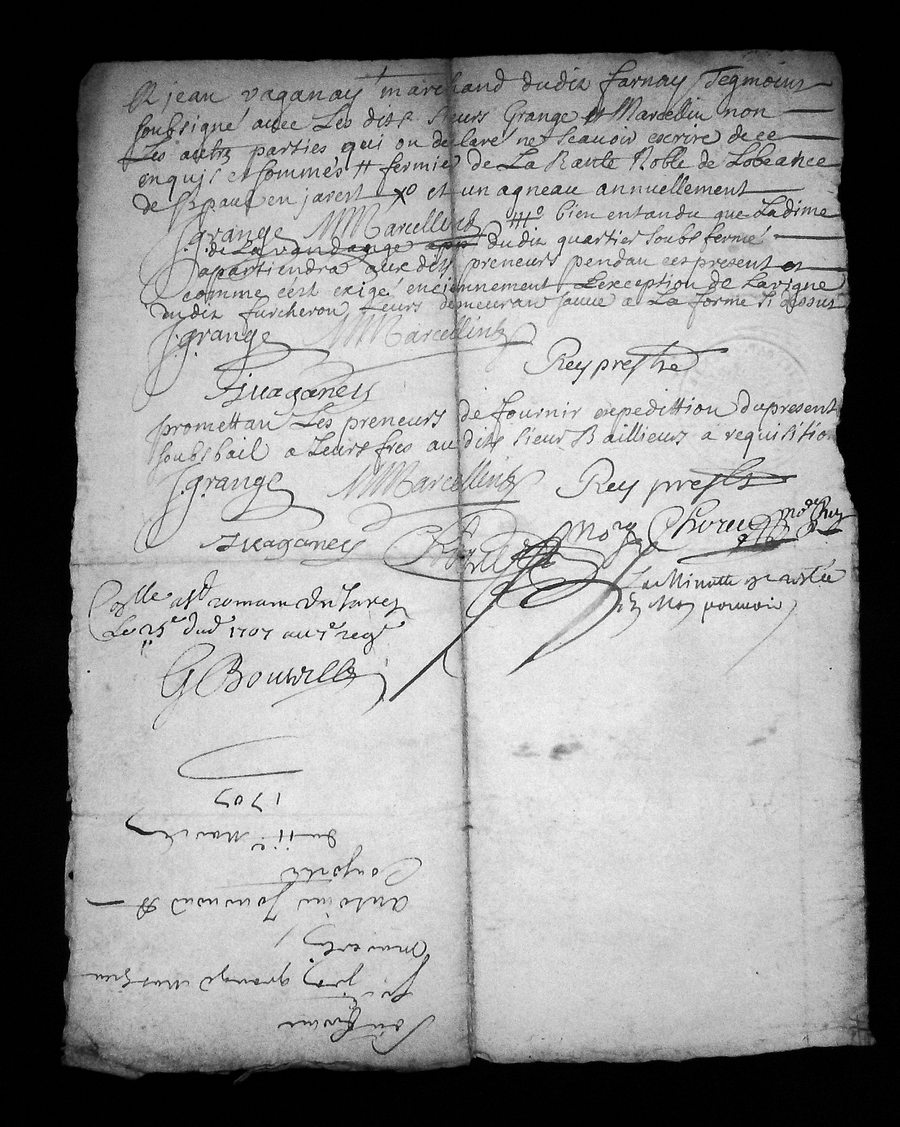 Et jean vaganay marchand dudit farnay Tegmoins
soubsigné avec Les dits Sieurs Grange et Marcellin non
Les autre parties qui on declaré ne scavoir escrire de ce
enquis et sommés # fermié de La Rante Noble de Lobeance
de St paul en jarest Xo et un agneau annuellement
J. grange MMarcellin
bien entandu que Ladime
de La vandange dudit quartier soubs fermé
apartiendra aux dits preneurs pendan ces present et
comme cest exigé enciennement Lexception de Lavigne
dudit furcheron Leurs demeuran sauve a La forme si dessus
J. grange MMarcellin
Rey prestre
J vaganey
promettan Les preneurs de fournir expedittion dupresent
soubs bail a Leurs fres au dits Sieur Baillieurs a requisition
J. grange MMarcellin Rey prestre
J vaganey
La Minutte
pouvoir
Collé a St romain du Jarez
Le 25e dud 1707 au 7e regre
G Bouvelle
Soufferme
grange
antoine
Consorts
du 11e Mars
1707